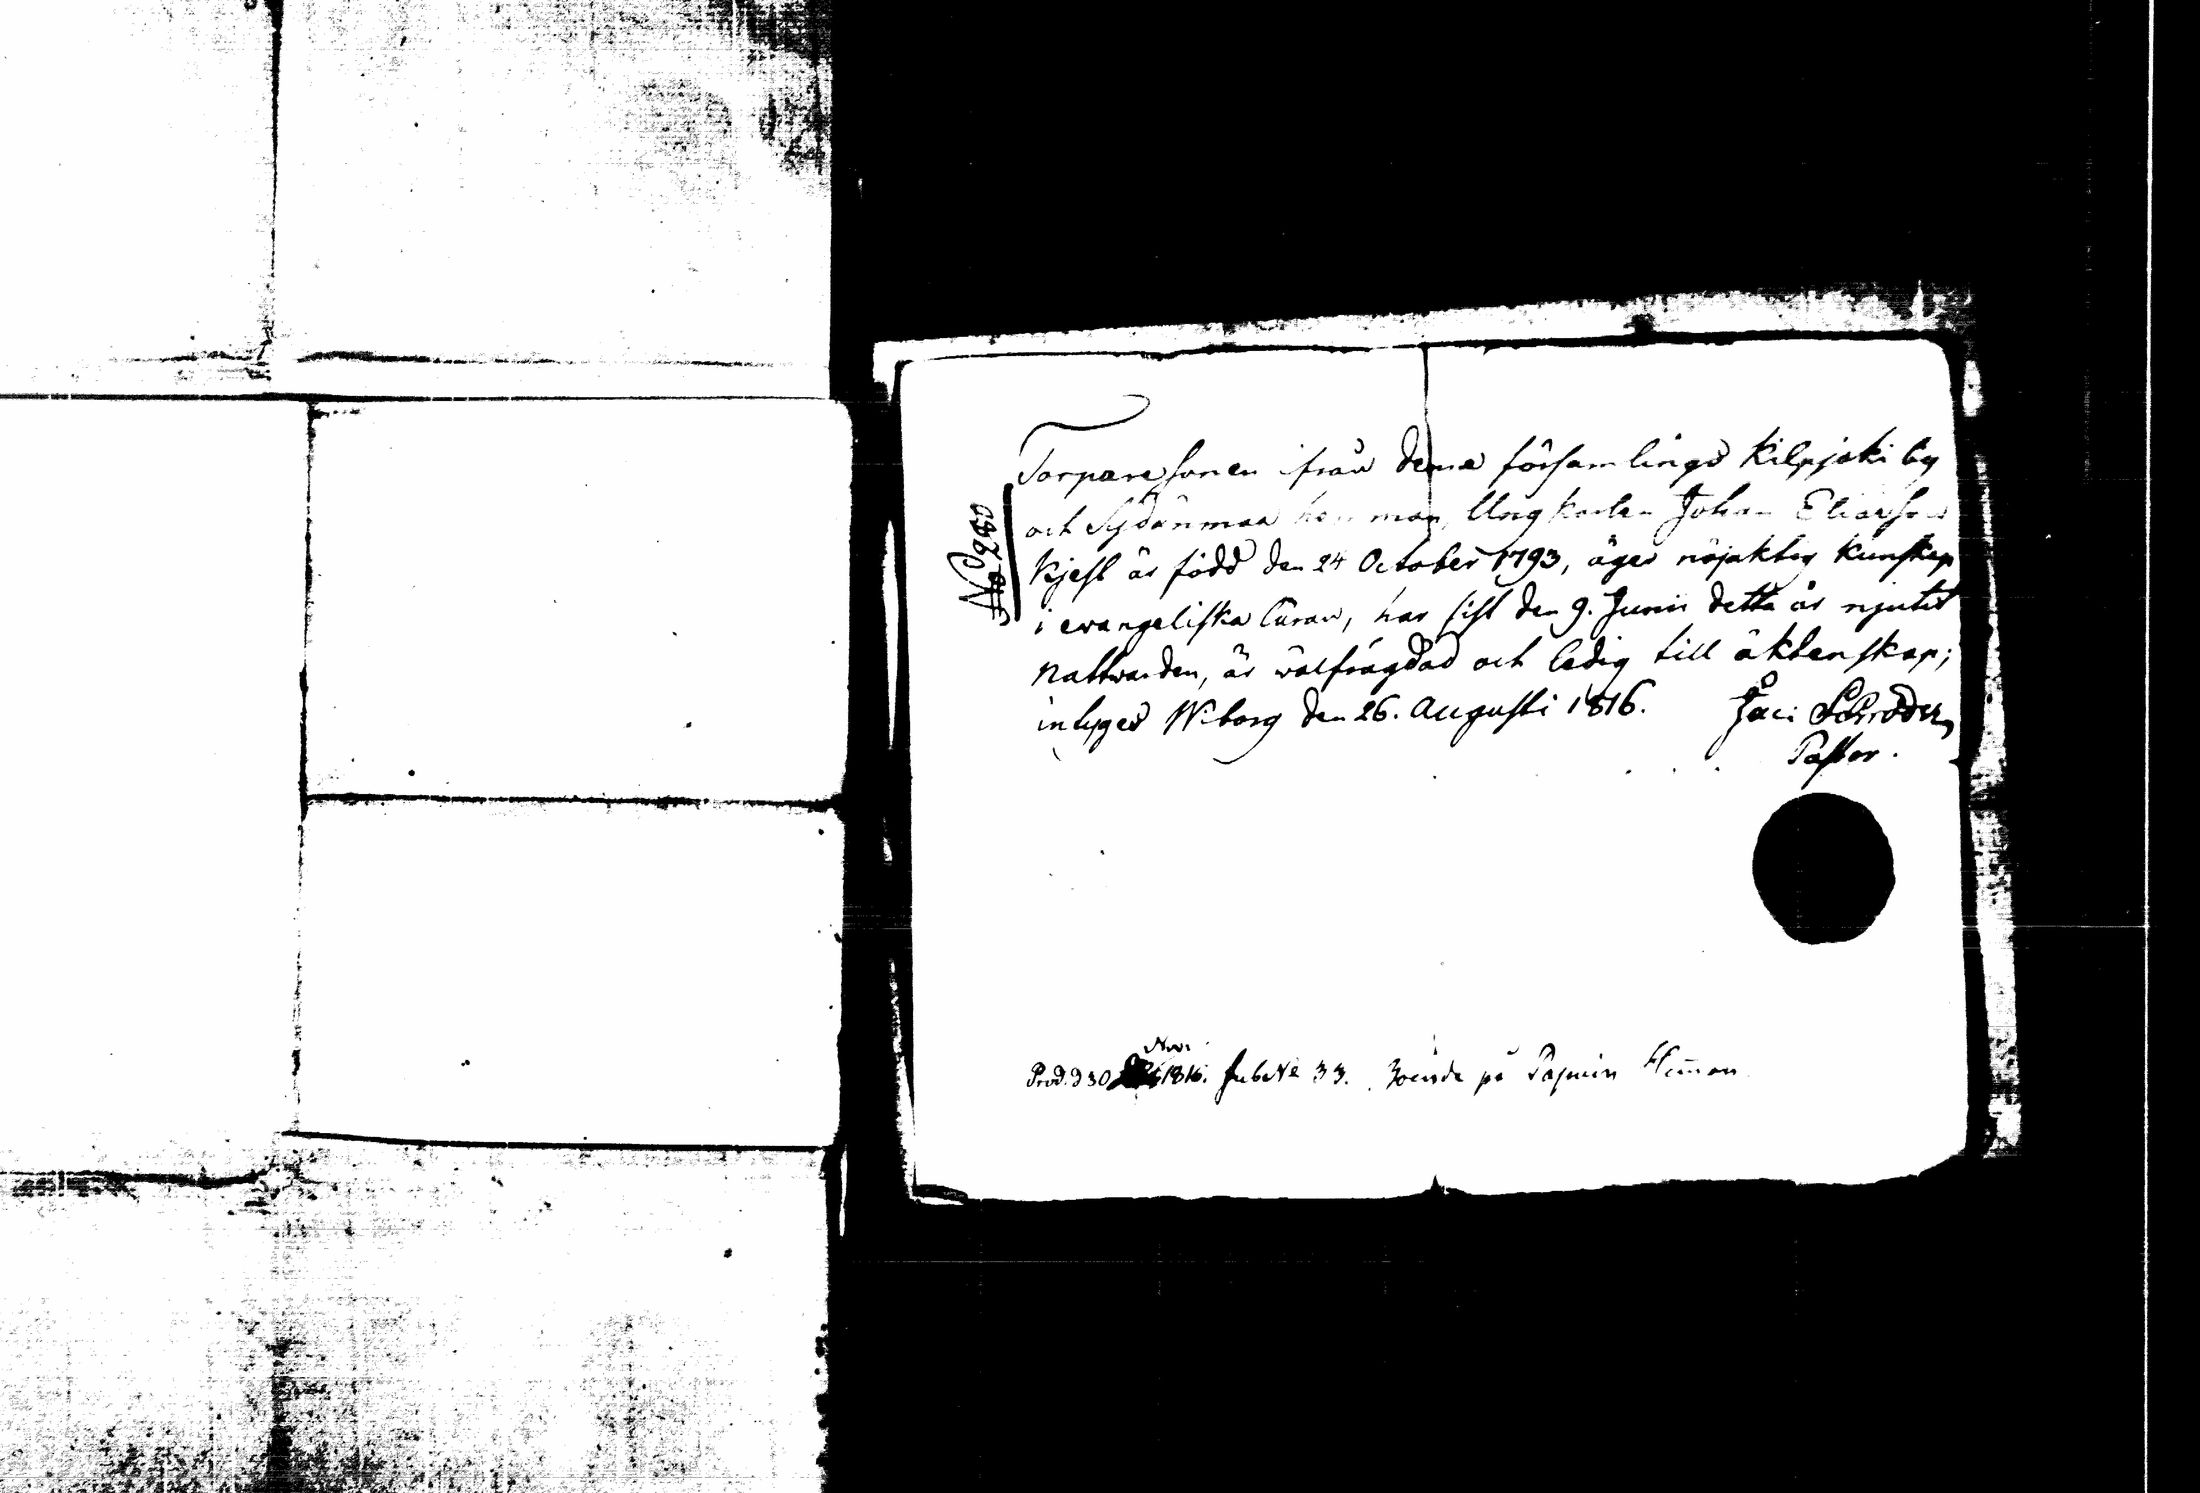 No 280
Torparesonen ifrån denna församlings Kilpjoki by
och Sydänmaa hemman, Ungkarlen Johan Eliasson
Kjest är född den 24 October 1793, äger nöjaktig kunskap
i evangeliska läran, har sist den 9. Junii detta år njutit
nattwarden, är wälfrägdad och ledig till äktenskap;
intyges Wiborg den 26. Augusti 1816. Jac: Schröder,
Pastor.
Novr
Prod. d 30 1816. sub No 33. boende på Hemman